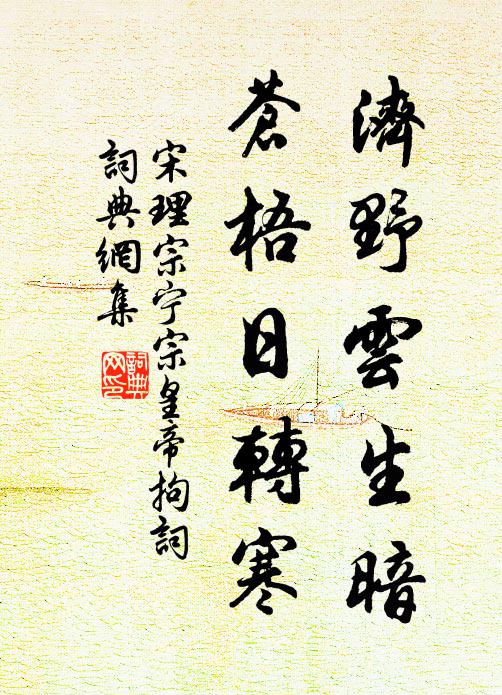 濟野雲生暗
蒼梧日轉寒
宋理宗宁宗皇帝拘詞
詞典網集
詞典网印